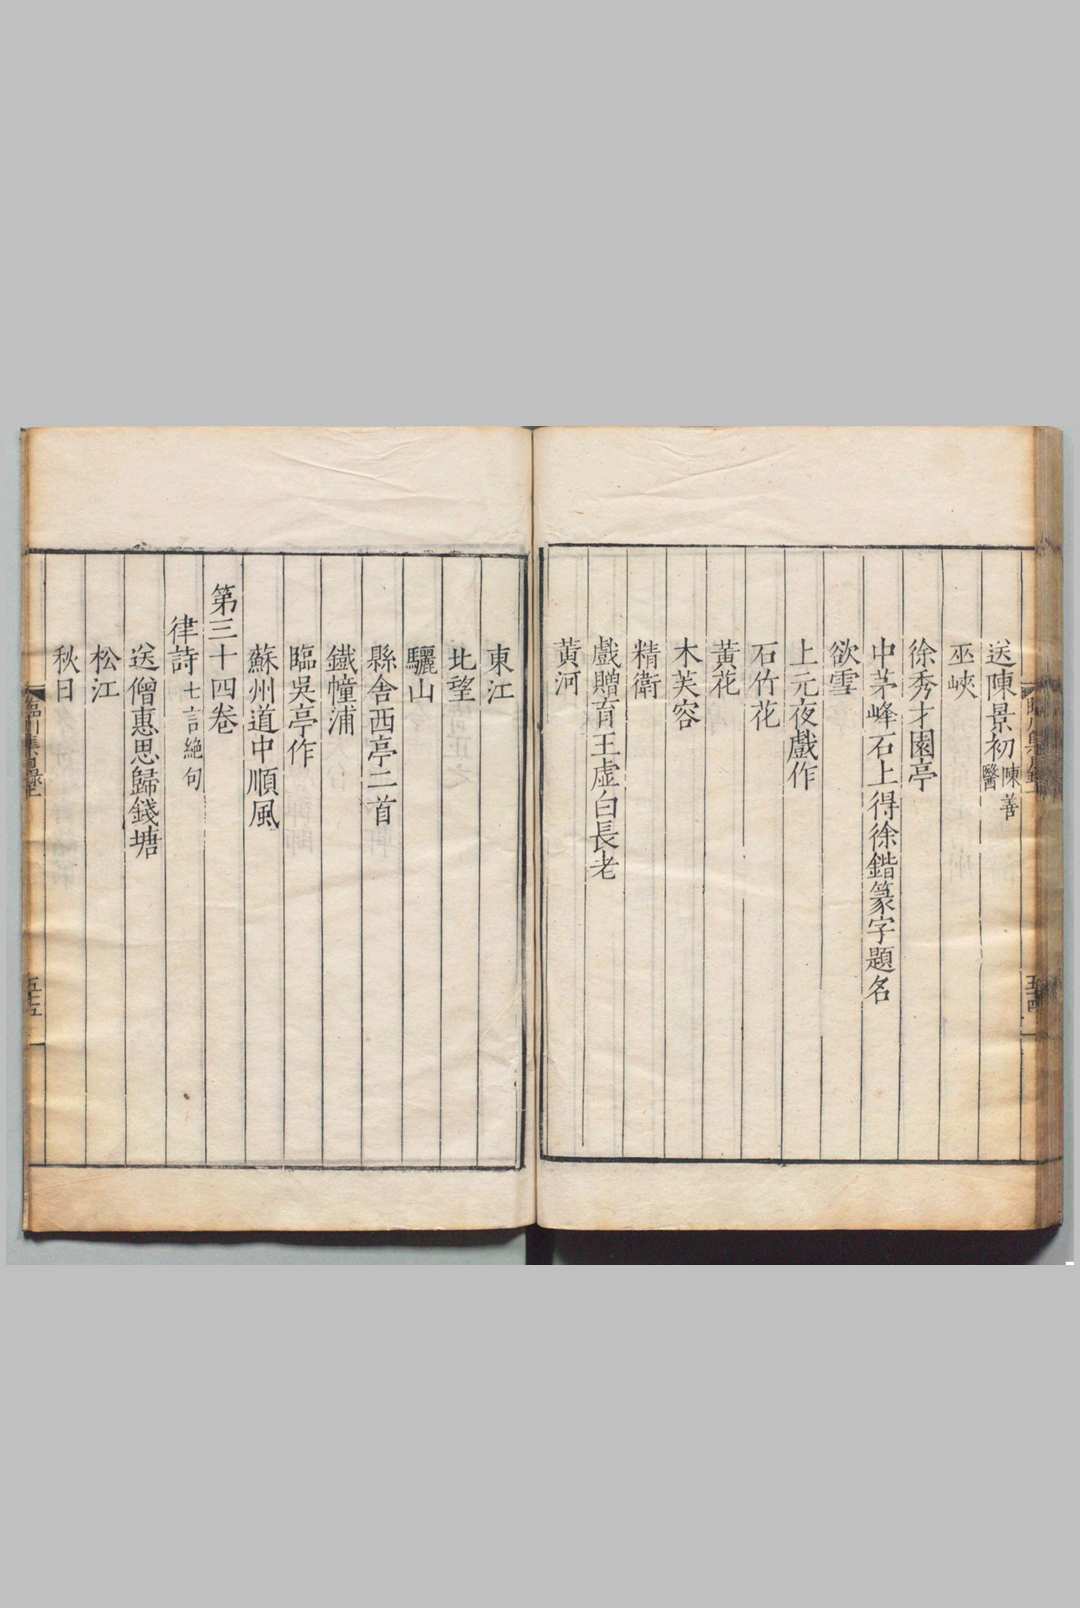 送陳景初陳善醫
巫峽
徐秀才園亭
中茅峰石上得徐鍇篆字題名
欲雪
上元夜戲作
石竹花
黃花
木芙容
精衛
戲贈育王虛白長老
黃河
東江
北望
驪山
縣舍西亭二首
鐵幢浦
臨吳亭作
蘇州道中順風
第三十四卷
律詩七言絕句
送僧惠思歸錢塘
松江
秋日